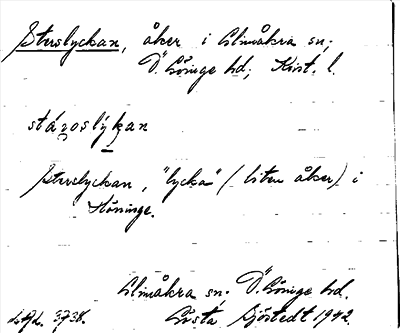 Sterslyckan, åker i Glimåkra sn;
Ö. Göinge hd; Krist. l.
stároslýkan
Sterslyckan, "lycka" (liten åker) i
Höninge.
Glimåkra sn. Ö. Göinge hd.
Gösta Sjöstedt 1942